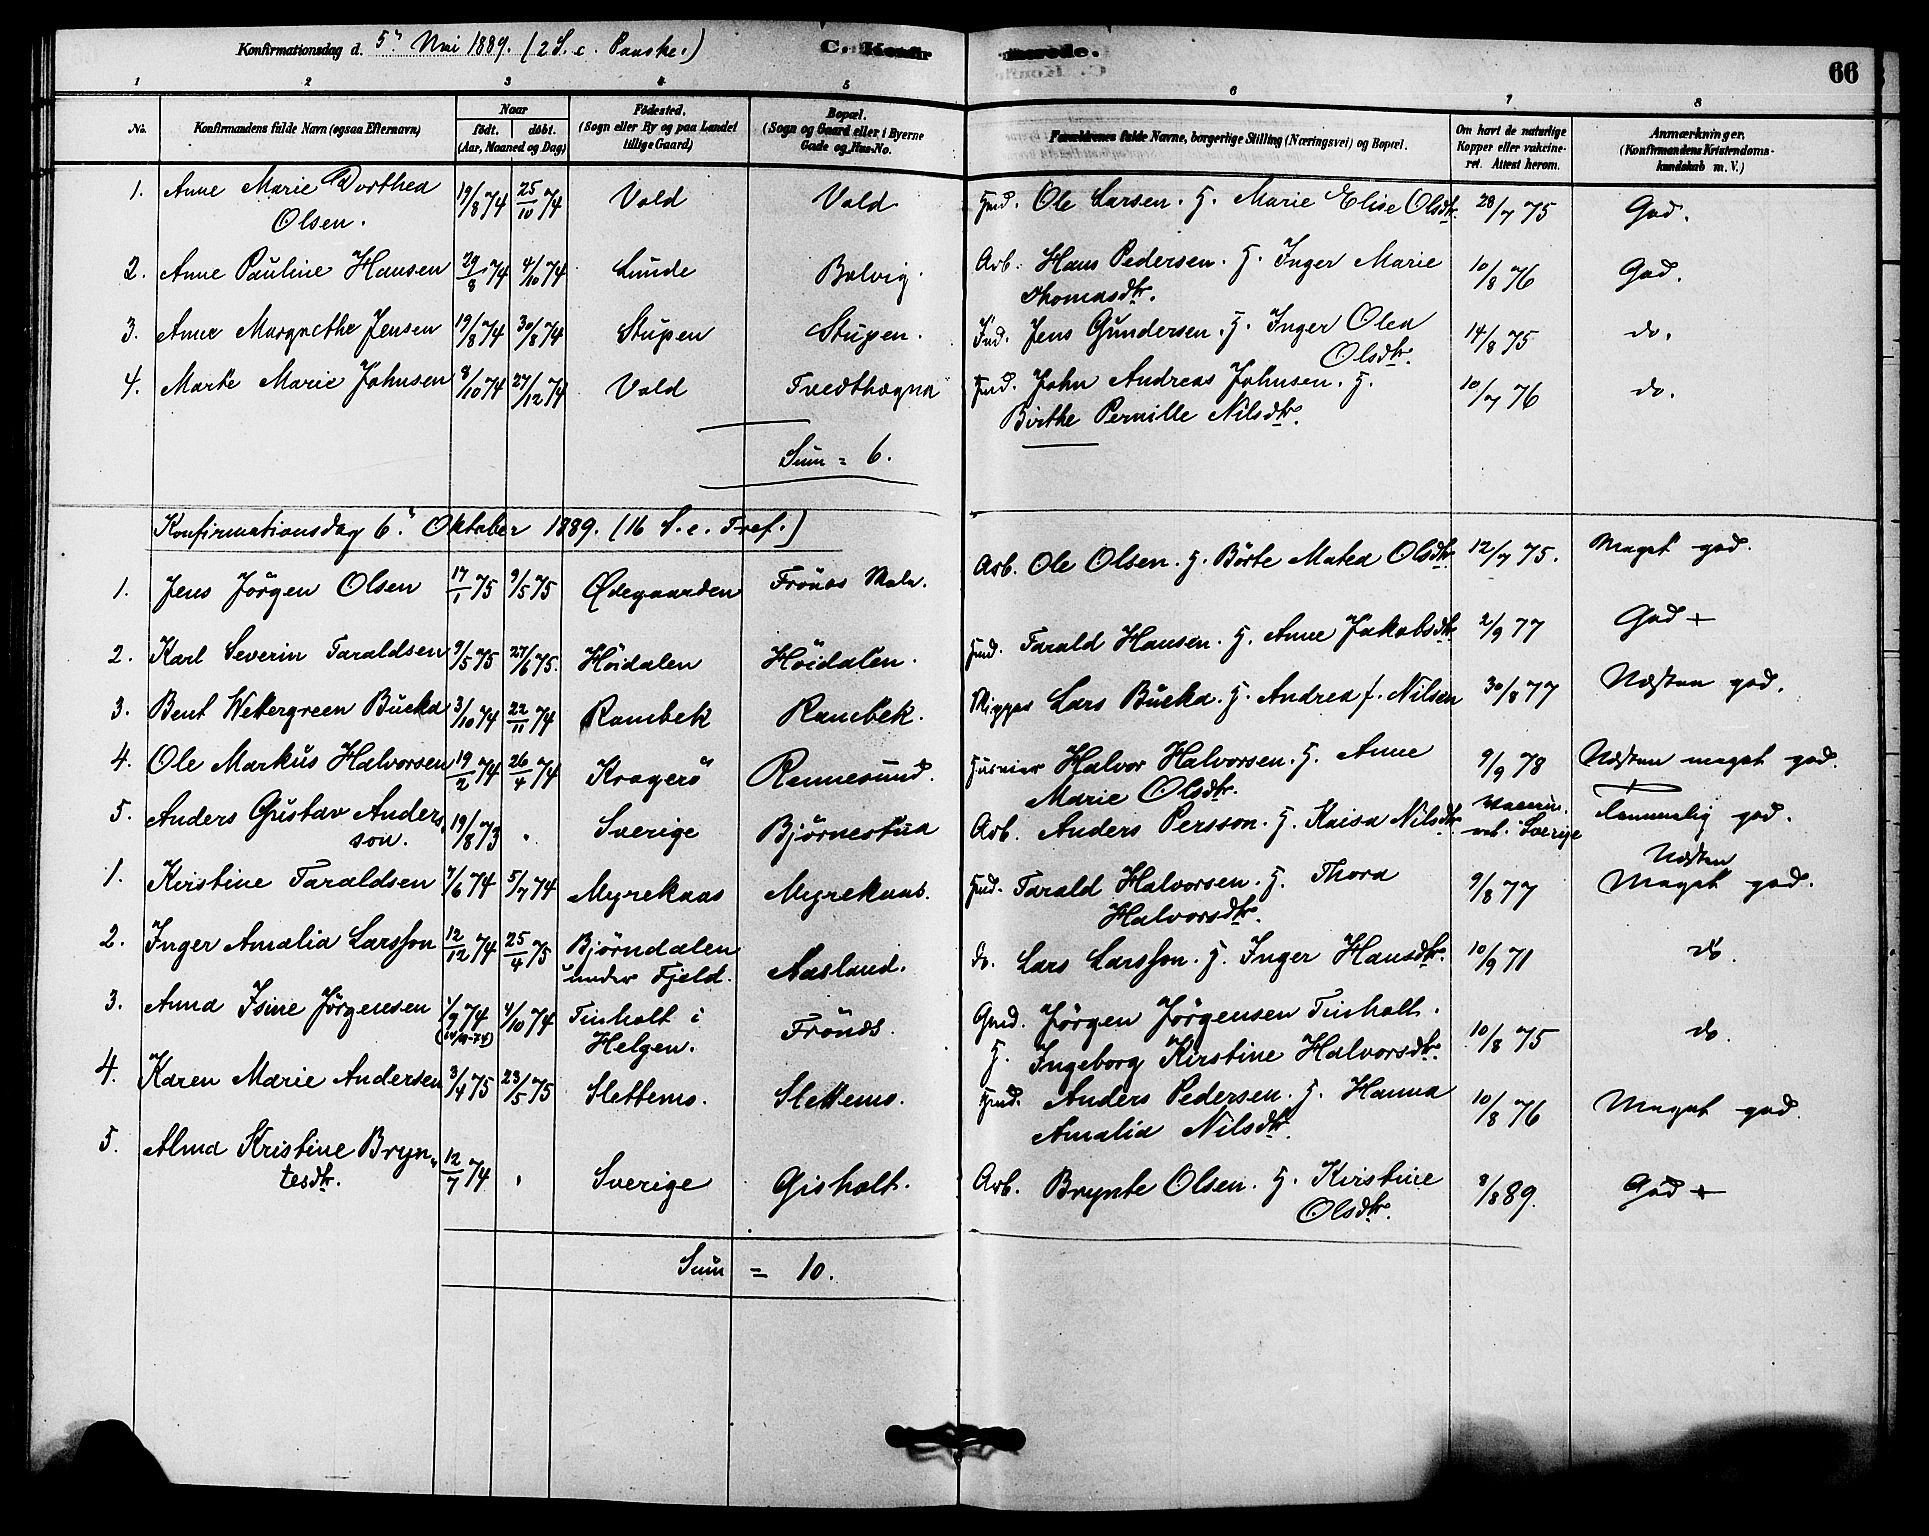 Konfirmationsdag d. 5' Mai 1889. (2 S. e. Paaske.) C. Konfirmerede. 66
1 2 3 4 5 6 7 8
No. Konfirmandens fulde Navn (ogsaa Efternavn) Naar født. døbt. (Aar, Maaned og Dag) Fødested. (Sogn eller By og paa Landet tillige Gaard) Bopæl. (Sogn og Gaard eller i Byerne Gade og Hus-No. Forældrenes fulde Navne, borgerlige Stilling (Næringsvei) og Bopæl. Om havt de naturlige Kopper eller vakcineret. Attest herom. Anmærkninger. (Konfirmandens Kristendomskundskab m. V.)
1. Anne Marie Dorthea Olsen. 19/8 74 25/10 74 Vold Vold Gmd. Ole Larsen. H. Marie Elise Olsdtr. 28/7 75 God.
2. Anne Pauline Hansen 29/8 74 4/10 74 Lunde Bolvig. Arb. Hans Pedersen. H. Inger Marie Thomasdtr. 10/8 76 God.
3. Anne Margrethe Jensen 19/8 74 30/8 74 Stupen Stupen. Ind. Jens Gundersen. H. Inger Olea Olsdtr. 14/8 75 do.
4. Marte Marie Johnsen 8/10 74 27/12 74 Vold Tvedthogna Hmd. John Andreas Johnsen. H. Birthe Pernille Nilsdtr. 10/7 76 do.
Sum = 6.
Konfirmationsdag 6' Oktober 1889. (16 S. e. Tref.)
1. Jens Jörgen Olsen 17/1 75 9/5 75 Ødegaarden Frönæs Arb. Ole Olsen. H. Börte Matea Olsdtr. 12/7 75. Meget god.
2. Karl Severin Taraldsen 9/5 75 27/6 75. Höidalen Höidalen. Hmd. Tarald Hansen. H. Anne Jakobsdtr. 2/9 77 God +
3. Bent Wettergreen Bucka 3/10 74 22/11 74 Rambek Rambek. Skipper Lars Bucka. H. Andrea f. Nilsen 30/8 77 Næsten god.
4. Ole Markus Halvorsen 19/2 74 26/4 74 Kragerö Rennesund. Husmier Halvor Halvorsen. H. Anne Marie Olsdtr. 9/9 78 Næsten meget god.
5. Anders Gustav Andersson. 19/8 73 " Sverige Björnestua Arb. Anders Persson. H. Kaisa Nilsdtr. i Sverige Temmelig god.
1. Kirstine Taraldsen 7/6 74 5/7 74 Myrekaas Myrekaas. Hmd. Tarald Halvorsen. H. Thora Halvorsdtr. 9/8 77 Næsten Meget god.
2. Inger Amalia Larsson 12/12 74 25/4 75 Björndalen under Fjeld. Aasland. do. Lars Larsson. H. Inger Hansdtr. 10/9 71 do.
3. Anna Isine Jörgensen 1/9 74 4/10 74 Tinholt i Helgen. Frönæs. Gmd. Jörgen Jörgensen Tinholt. H. Ingeborg Kirstine Halvorsdtr. 10/8 75 do.
4. Karen Marie Andersen 3/4 75 23/5 75 Slettemo. Slettemo. Hmd. Anders Pedersen. H. Hanna Amalia Nilsdtr. 10/8 76 Meget god.
5. Alma Kristine Bryntesdtr. 12/7 74 " Sverige Gisholt. Arb. Brynte Olsen. H. Kirstine Olsdtr. 8/8 89. God +
Sum = 10.